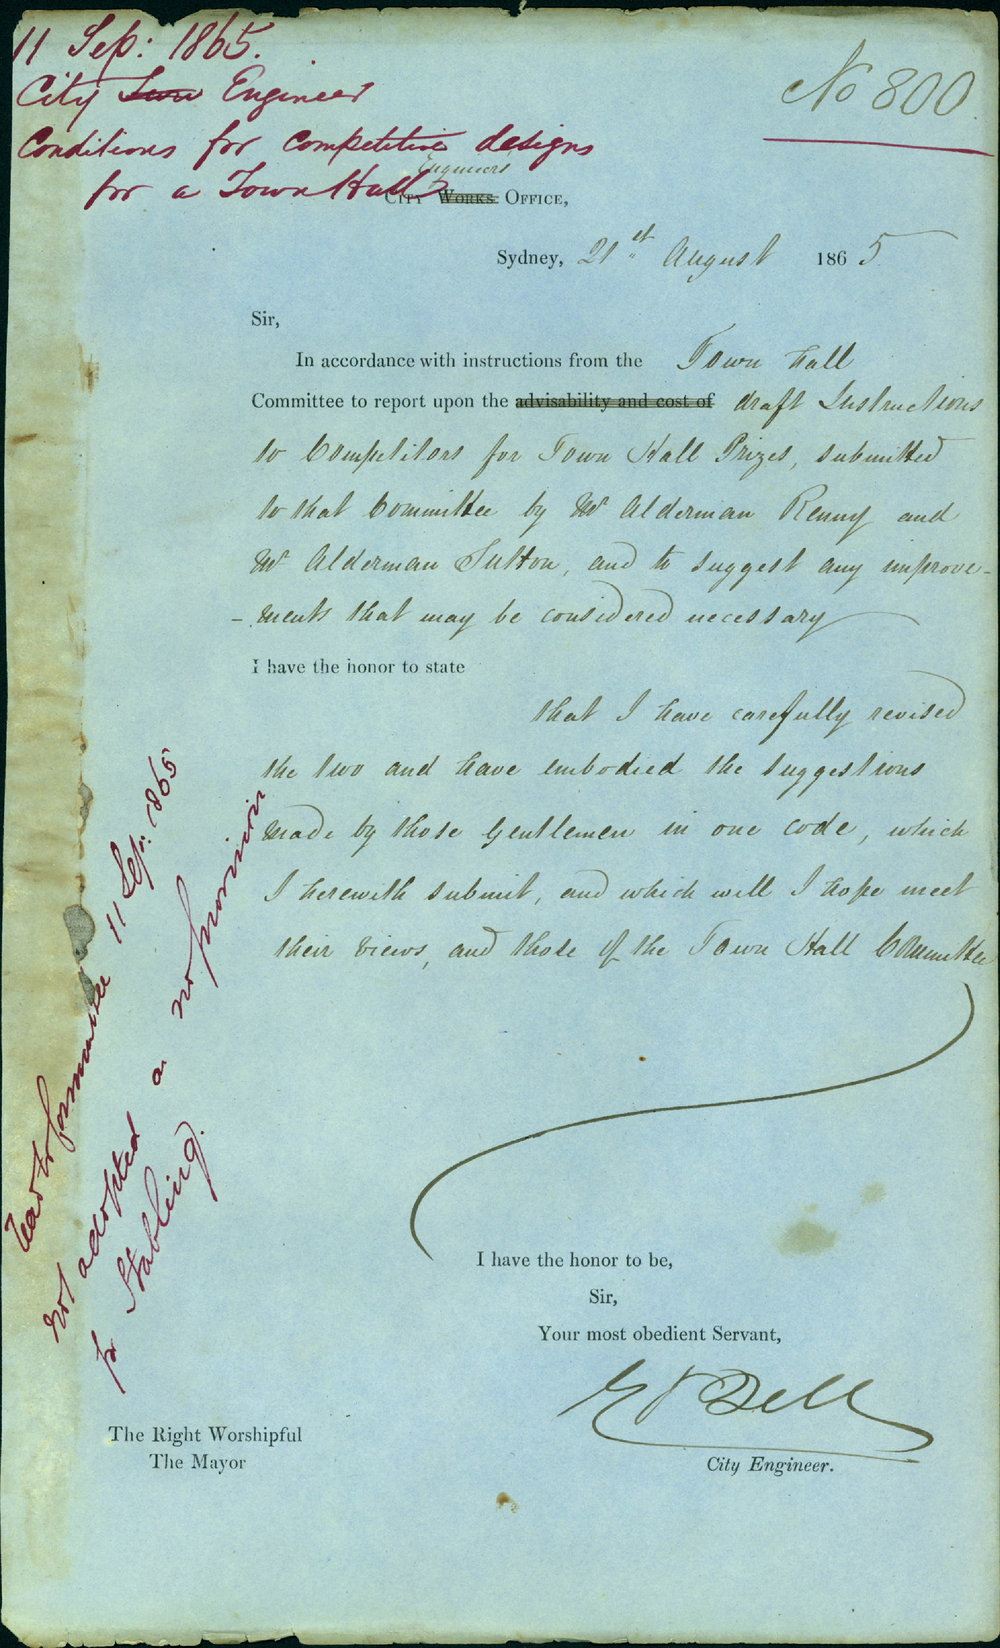 11 Sep: 1865.
City Engineer
Conditions for competitive designs
for a Town Hall
No 800
Engineers
CITY WORKS OFFICE,
Sydney, 21st August 1865
Sir,
In accordance with instructions from the Town hall
Committee to report upon the advisability and cost of draft Instructions
to Competitors for Town Hall Prizes, submitted
to that Committee by Mr Alderman Renny and
Mr Alderman Sutton, and to suggest any improve-
-ments that may be considered necessary
I have the honor to state
that I have carefully revised
the two and have embodied the suggestions
made by those Gentlemen in one code, which
I herewith submit, and which will I hope meet
their views, and those of the Town Hall Committee
Read to Committee 11 Sep: 1865
not adopted as no provision
for Stabling.
I have the honor to be,
Sir,
Your most obedient Servant,
Bell
City Engineer.
The Right Worshipful
The Mayor